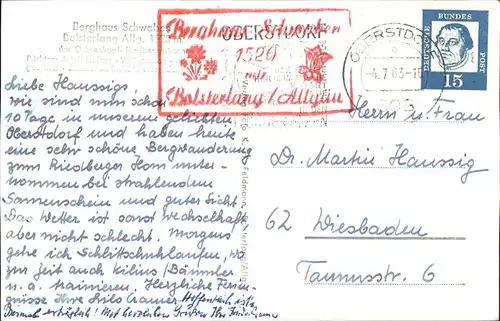 Berghaus Schwaben
Bolsterlang Allg. 1520
Berghaus Schwaben
1520 m
Bolsterlang / Allgäu
OBERSTDORF
OBERSTDORF
-4.7.63-1
DEUTSCHE BUNDESPOST
15
Liebe Haussigs,
wir sind nun schon
10 Tage in unserem geliebten
Oberstdorf und haben heute
eine sehr schöne Bergwanderung
zum Riedberger Horn unter-
nommen bei strahlendem
Sonnenschein und guter Sicht.
Das Wetter ist sonst wechselhaft
aber nicht schlecht. Morgens
gehe ich Schlittschuhlaufen, wo
zur Zeit auch Kilius/Bäumler
u.a. trainieren. Herzliche Ferien-
grüsse Ihre Nils Cramer. Hoffentlich ist's
Bremen erträglich! Mit herzlichen Grüßen Ihr
Herrn u. Frau
Dr. Martin Haussig
62 Wiesbaden
Taunusstr. 6